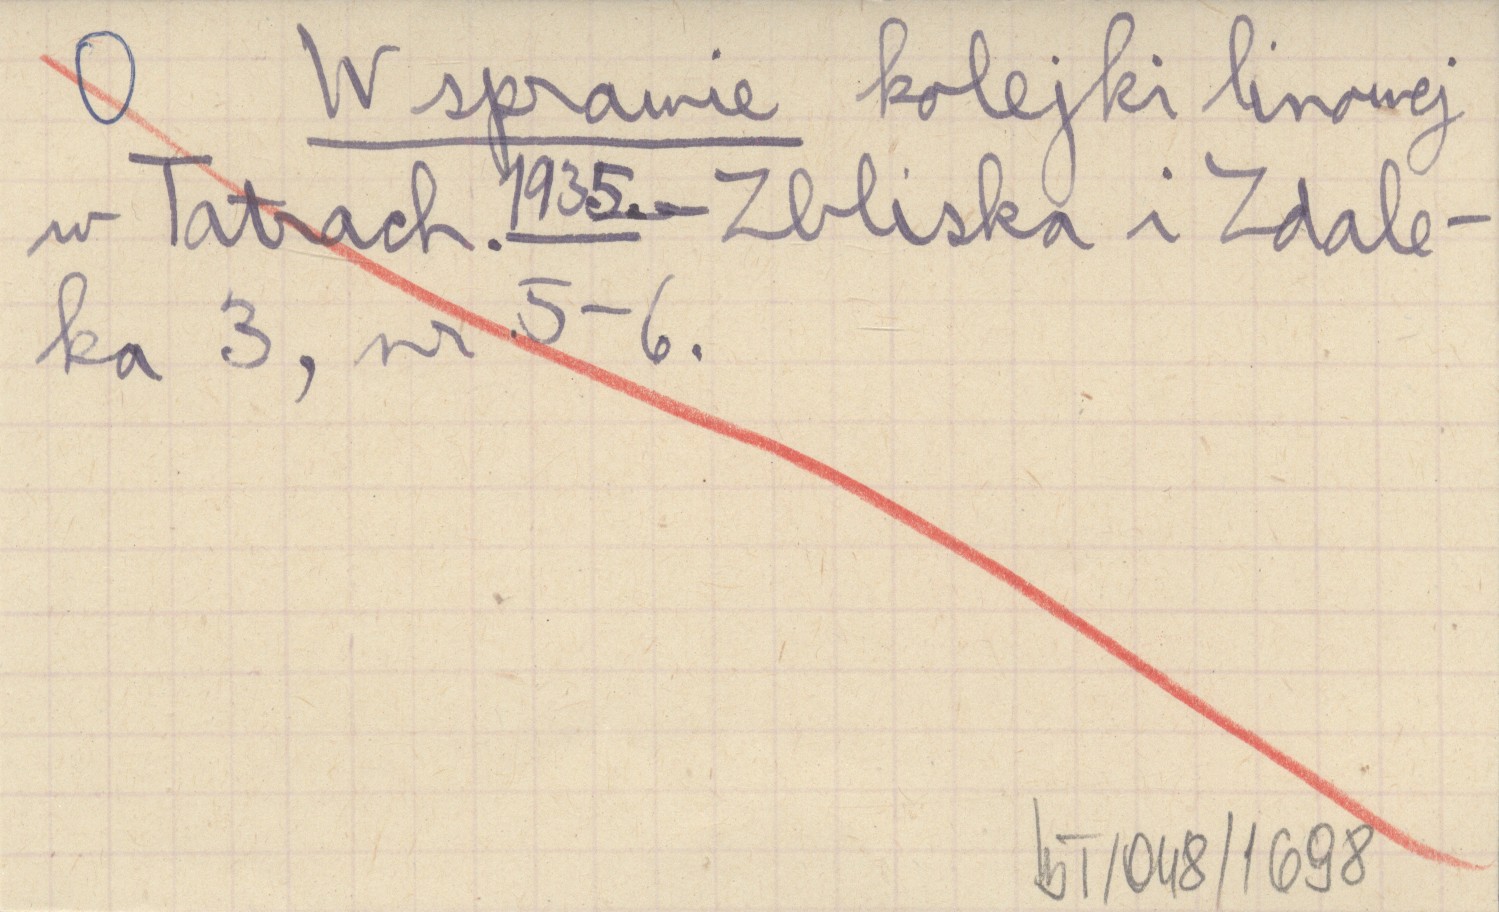 O W sprawie kolejki linowej
w Tatrach. 1935. - Zbliska i Zdale-
ka 3, nr 5-6.
bT/048/1698